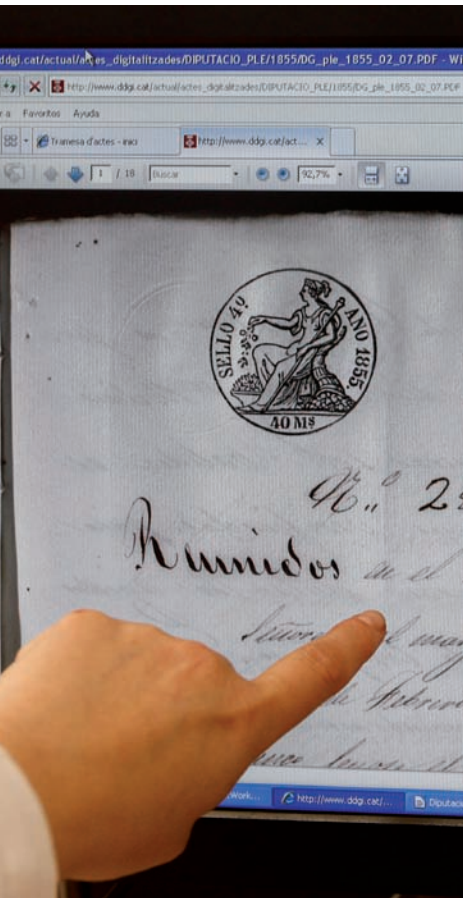 ddgi.cat/actual/actes_digitalitzades/DIPUTACIO_PLE/1855/DG_ple_1855_02_07.PDF - Wi
http://www.ddgi.cat/actual/actes_digitalitzades/DIPUTACIO_PLE/1855/DG_ple_1855_02_07.PDF
Favoritos Ayuda
Tramesa d'actes - inici
http://www.ddgi.cat/act... X
1 / 18 Buscar 92,7%
SELLO 4º AÑO 1855.
40 Ms
N.º 2
Reunidos en el
Señores del
de Febrero
http://www.ddgi.cat/...
Diputació